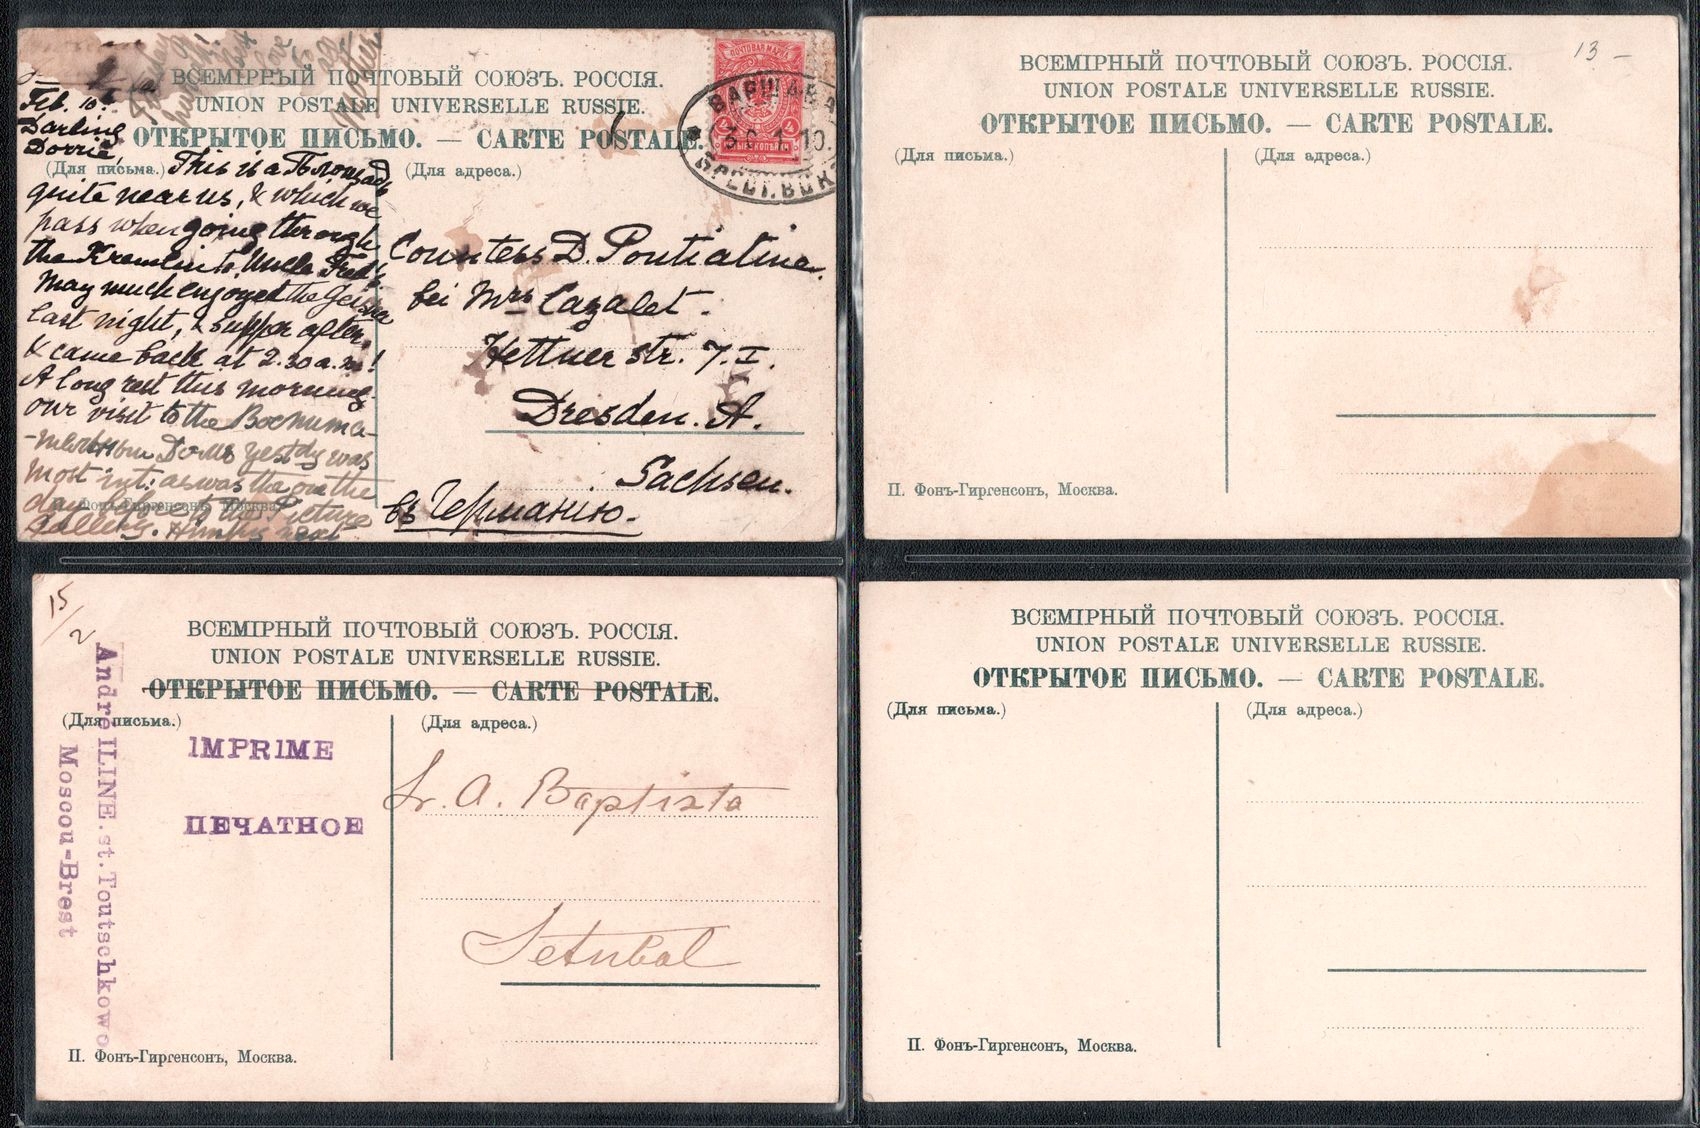 ВСЕМІРНЫЙ ПОЧТОВЫЙ СОЮЗЪ. РОССІЯ.
UNION POSTALE UNIVERSELLE RUSSIE.
ОТКРЫТОЕ ПИСЬМО. — CARTE POSTALE.
ПОЧТОВАЯ МАРКА
ВАРШАВА
Feb. 10
Darling
Dorrie,
(Для письма.)
(Для адреса.)
This is a
quite near us, & which we
pass when going through
the Kremlin to Uncle Fred's.
May much enjoyed the Geisha
last night, & supper after,
& came back at 2.30 a.m!
A long rest this morning.
our visit to the
yestdy was
most int: as was the one the
day before to the Picture
Gallery.
Countess D. Pontiatine.
bei Mrs Cazalet.
Hettner str. 7. I.
Dresden. A.
Sachsen.
въ Германію.
П. Фонъ-Гиргенсонъ, Москва.
13 –
ВСЕМІРНЫЙ ПОЧТОВЫЙ СОЮЗЪ. РОССІЯ.
UNION POSTALE UNIVERSELLE RUSSIE.
ОТКРЫТОЕ ПИСЬМО. — CARTE POSTALE.
(Для письма.)
(Для адреса.)
П. Фонъ-Гиргенсонъ, Москва.
15/2
ВСЕМІРНЫЙ ПОЧТОВЫЙ СОЮЗЪ. РОССІЯ.
UNION POSTALE UNIVERSELLE RUSSIE.
ОТКРЫТОЕ ПИСЬМО. — CARTE POSTALE.
(Для письма.)
(Для адреса.)
André ILINE. st. Toutschkowo
Moscou-Brest
IMPRIME
ПЕЧАТНОЕ
Sr. A. Baptista
Setubal
П. Фонъ-Гиргенсонъ, Москва.
ВСЕМІРНЫЙ ПОЧТОВЫЙ СОЮЗЪ. РОССІЯ.
UNION POSTALE UNIVERSELLE RUSSIE.
ОТКРЫТОЕ ПИСЬМО. — CARTE POSTALE.
(Для письма.)
(Для адреса.)
П. Фонъ-Гиргенсонъ, Москва.